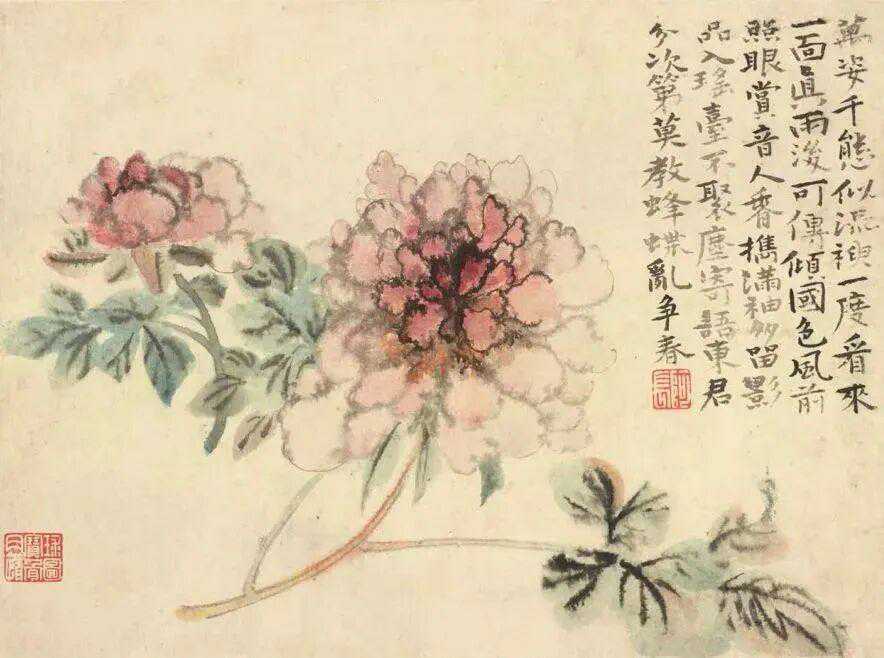 萬姿千態似神一度看來
一面眞雨後可傳傾國色風前
照眼賞音人香攜滿袖多留影
品入瑤臺不聚塵寄語東君
分次第莫教蜂蝶亂爭春
阿長